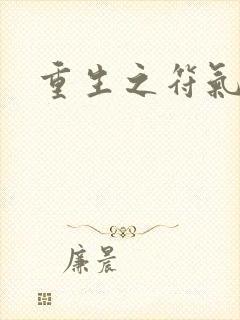 重生之符氣
廉晨